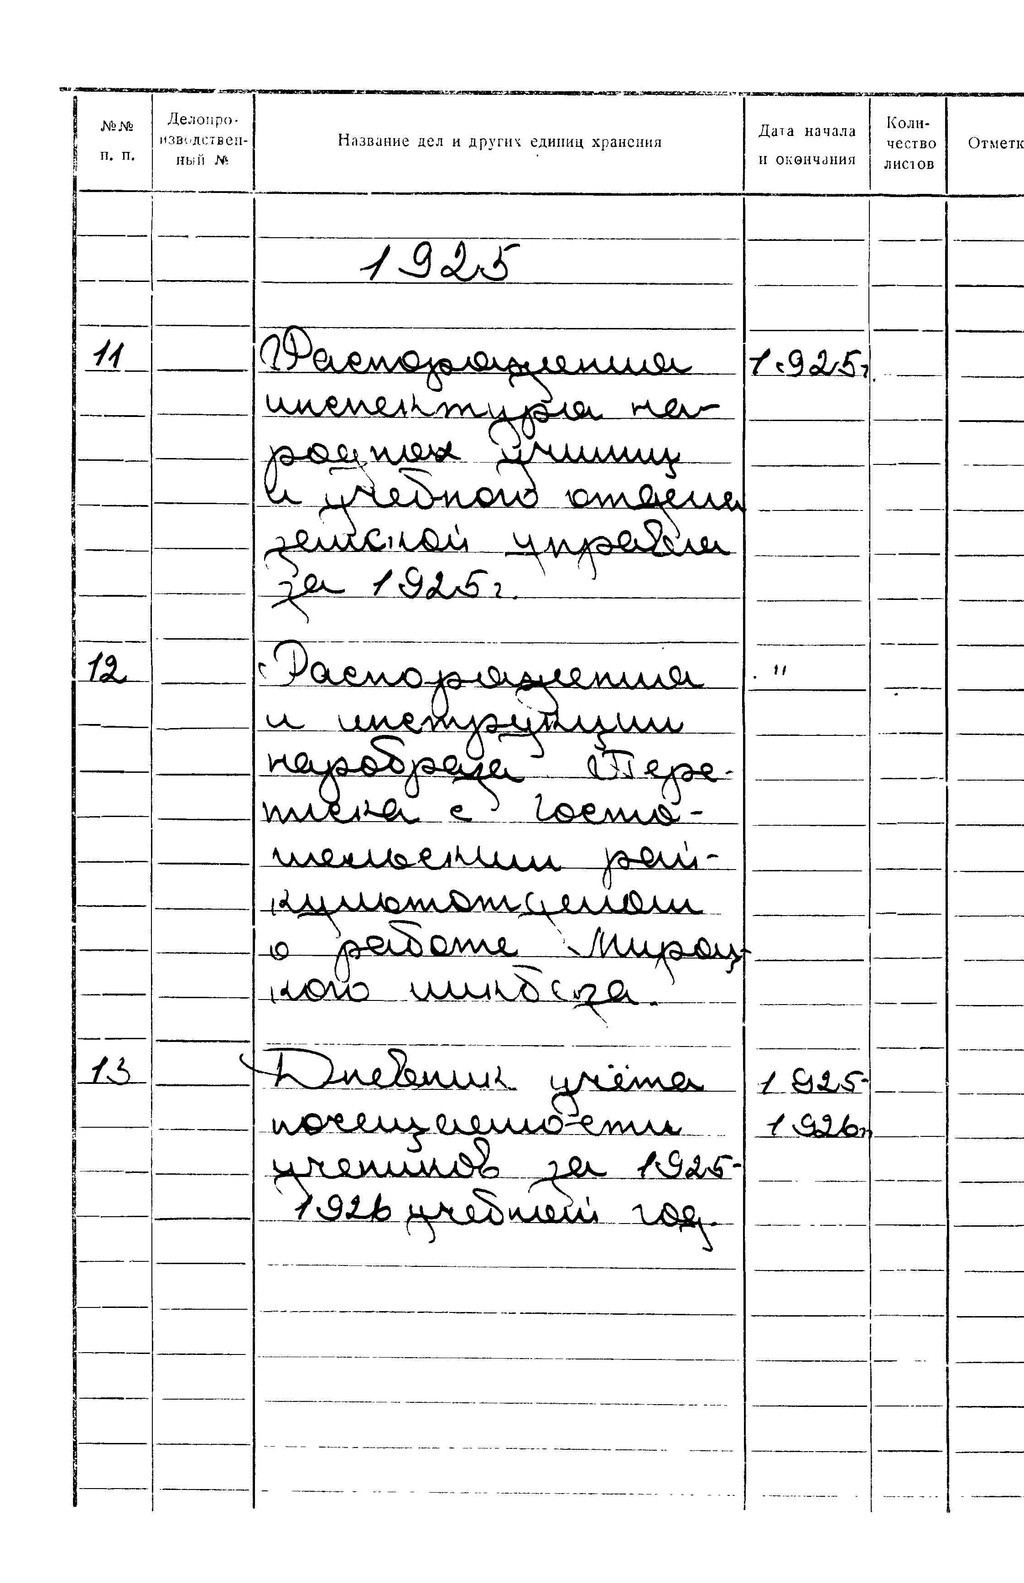 №№ п. п.
Делопро-
изводствен-
ный №
Название дел и других единиц хранения
Дата начала
и окончания
Коли-
чество
листов
Отметк
1925
11 Распоряжения 1925г.
инспектура на-
родных училищ
и учебного отдела
земской управы
за 1925г.
12 Распоряжения "
и инструкции
наробраза Пере-
писка с Госто-
мельским рай-
культотделом
о работе Мироц-
кого ликбеза.
13 Дневник учёта 1925-
посещаемости 1926г
учеников за 1925-
1926 учебный год.